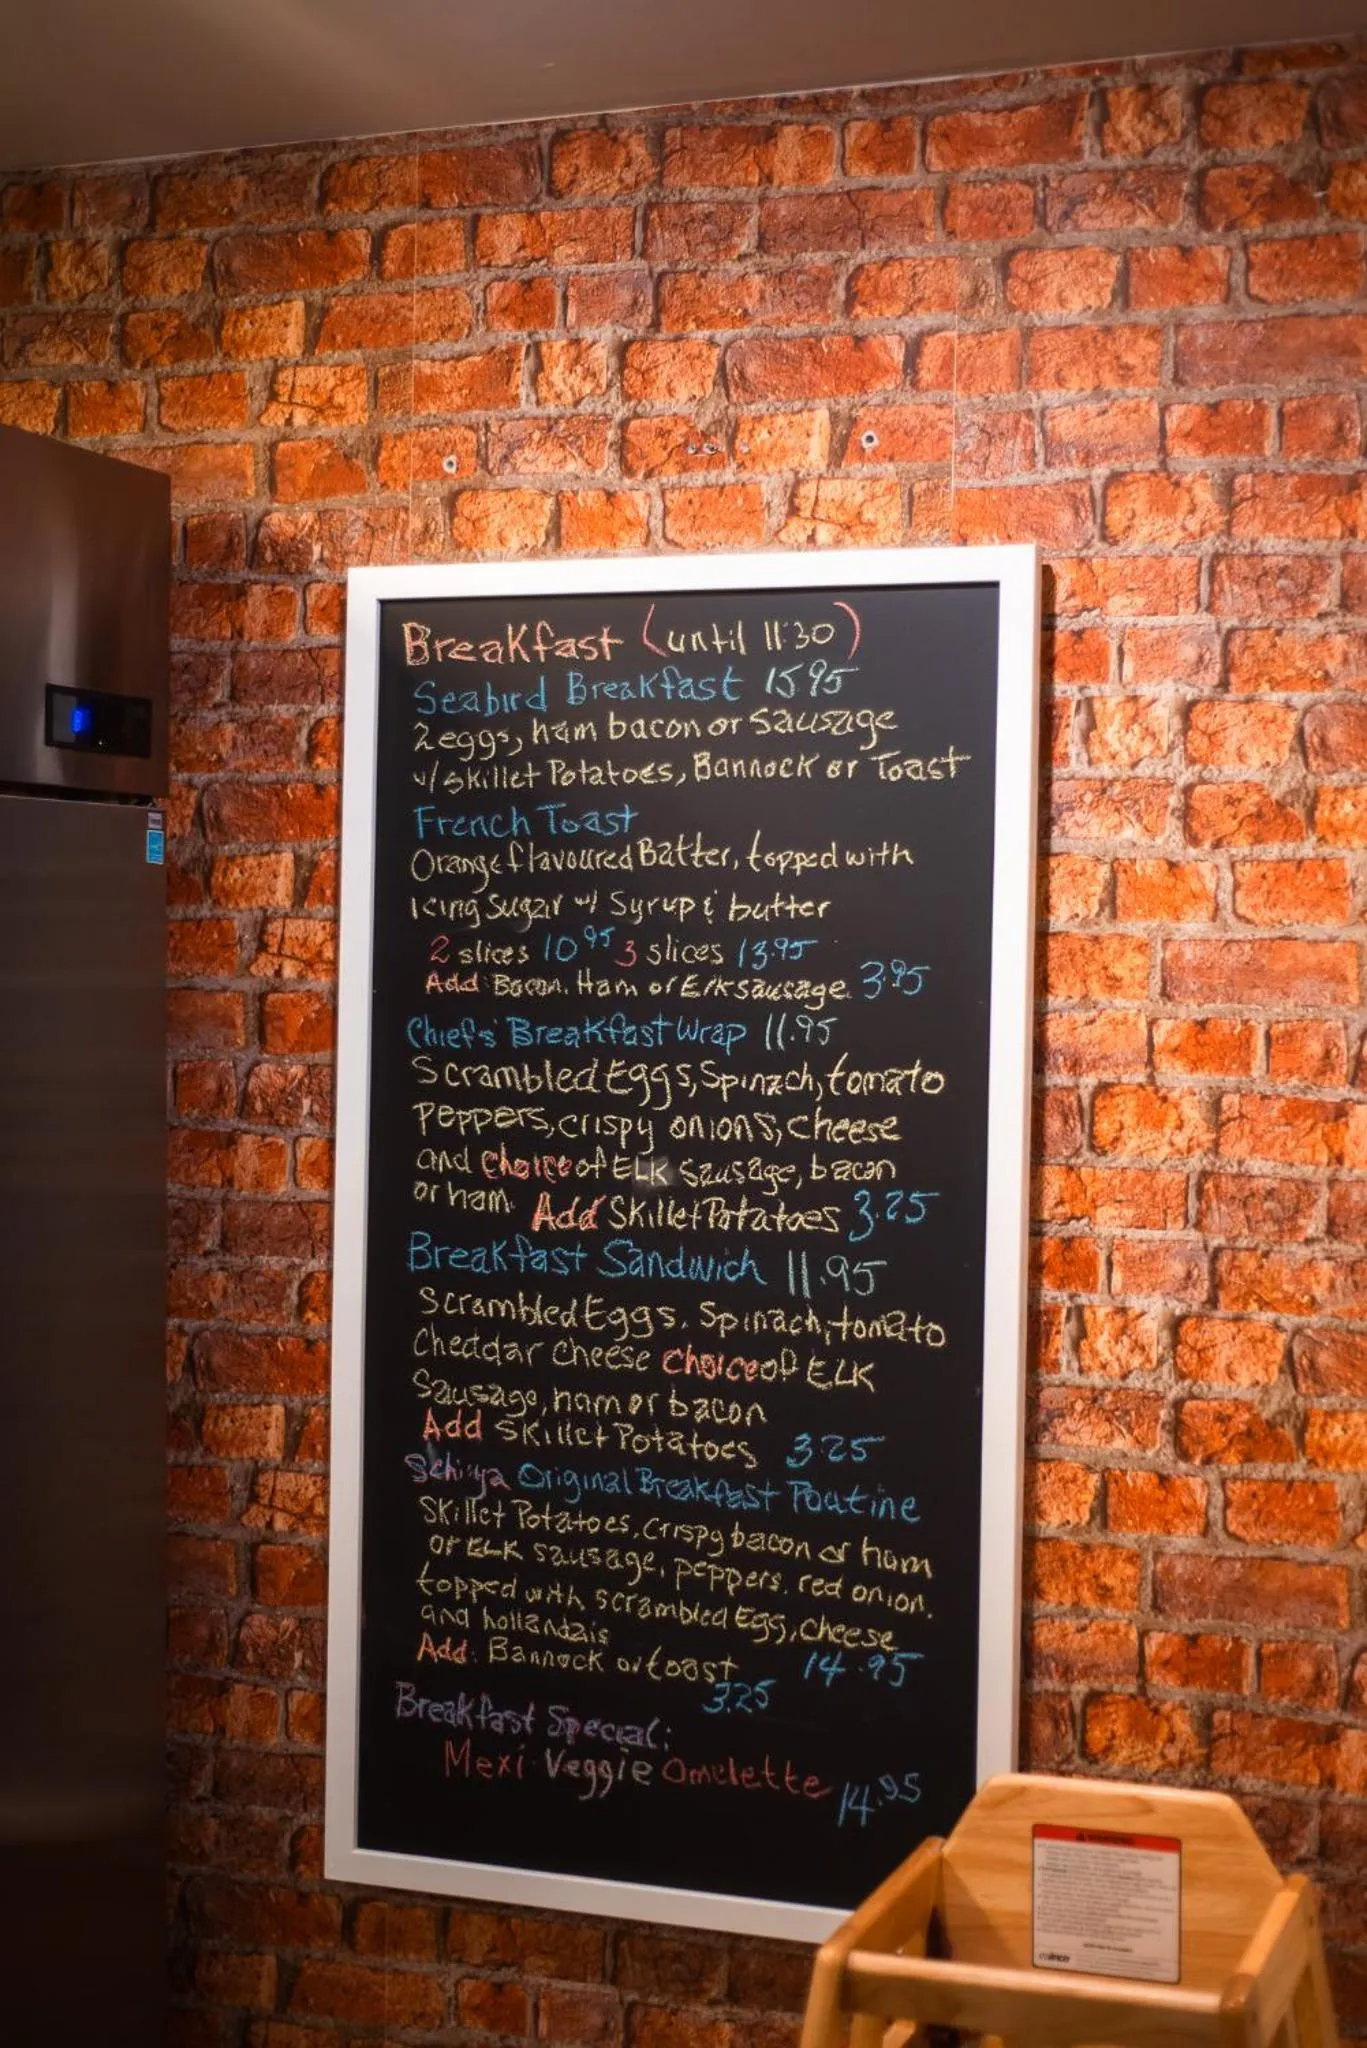 Breakfast (until 11:30)
Seabird Breakfast 15 95
2 eggs, ham bacon or Sausage
w/ skillet Potatoes, Bannock or Toast
French Toast
Orange flavoured Batter, topped with
Icing Sugar w/ Syrup & butter
2 slices 10 95 3 slices 13.95
Add: Bacon, Ham or Elk sausage 3.95
Chiefs' Breakfast Wrap 11.95
Scrambled Eggs, Spinach, tomato
peppers, crispy onions, cheese
and choice of ELK sausage, bacon
or ham. Add Skillet Potatoes 3.25
Breakfast Sandwich 11.95
Scrambled Eggs. Spinach, tomato
Cheddar cheese choice of ELK
Sausage, ham or bacon
Add Skillet Potatoes 3.25
Original Breakfast Poutine
Skillet Potatoes, crispy bacon or ham
or ELK sausage, peppers, red onion.
topped with scrambled Egg, cheese
and hollandais
Add: Bannock or toast 14.95
3.25
Breakfast Special:
Mexi Veggie Omelette 14.95
WARNING